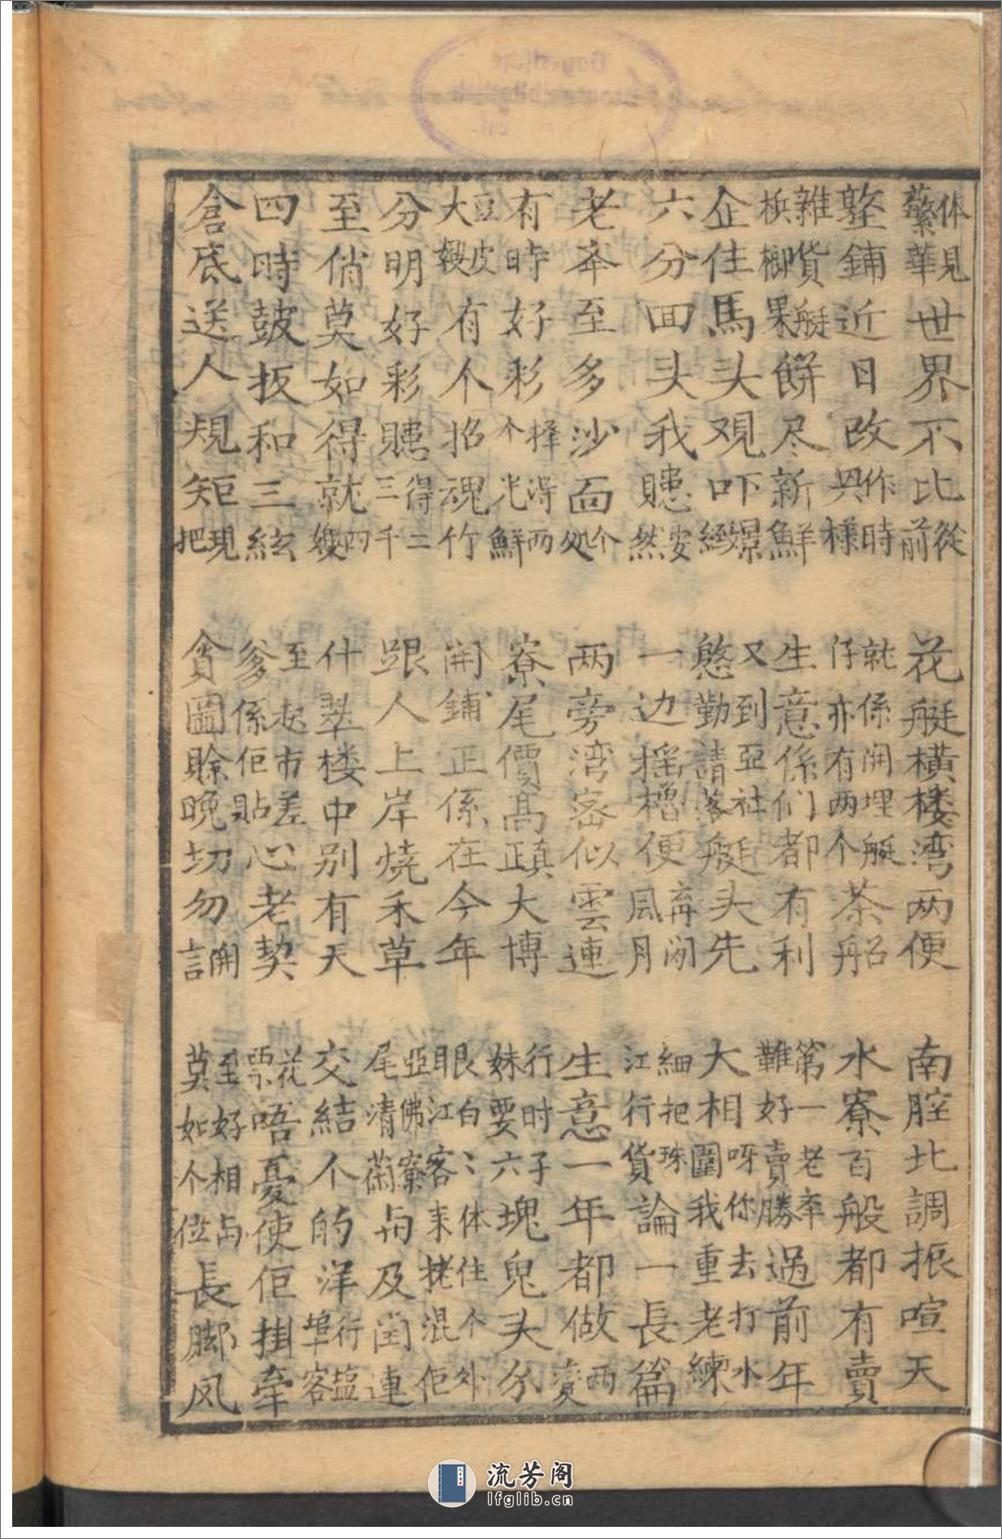 体見蘩華世界不比從前 花艇橫楼湾两便 南腔北調振喧天
整鋪近日改作時與樣 就係開埋艇仔亦有两个茶船 水寮百般都有賣
雜貨艇檳榔果餅尽新鮮 生意係们都有利 第一老牽難好賣勝過前年
企住馬头观吓景緻 又到亞社慇勤請落艇头先 大相呀你去打水圍我重老練
六分回头我聽安然 一边摇櫓便斉闹風月 細把珠江行貨論一長篇
老牽至多沙面个处 两旁湾密似雲連 生意一年都做两变
有時好彩择得两个光鮮 寮尾價高正鎮大博 行时子妹要六塊鬼头分
豆皮大嫂有个招魂竹 開鋪正係在今年 眼白〻体住个外江客来搓混佢
分明好彩聽得二三千 跟人上岸燒禾草 亞佛寮尾清蘭与及闰連
至俏莫如得就四嫂 什翠楼中别有天 交結个的洋行盐埠客
四時鼓板和三絃 至起市差爹係佢貼心老契 花票唔憂使佢掛牽
倉底送人規矩現把 貪圖賒晚切勿開言 至好相与莫如个位長脚凤
流芳阁
lfglib.cn